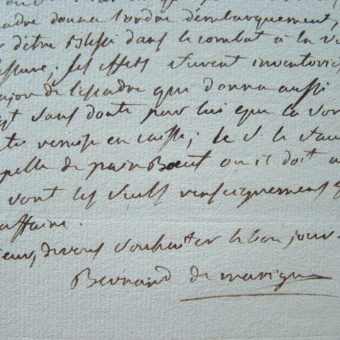 cadre donna l'ordre d'embarquement,
d'être blessé dans le combat à la v
ses effets furent inventorié
major de l'escadre qui donna aussi
est sans doute pour lui que la
remise en caisse; le S.
pelle de où il doit a
vont les seuls renseignemens
affaire.
de vous souhaiter le bon jour
Bernard de marign